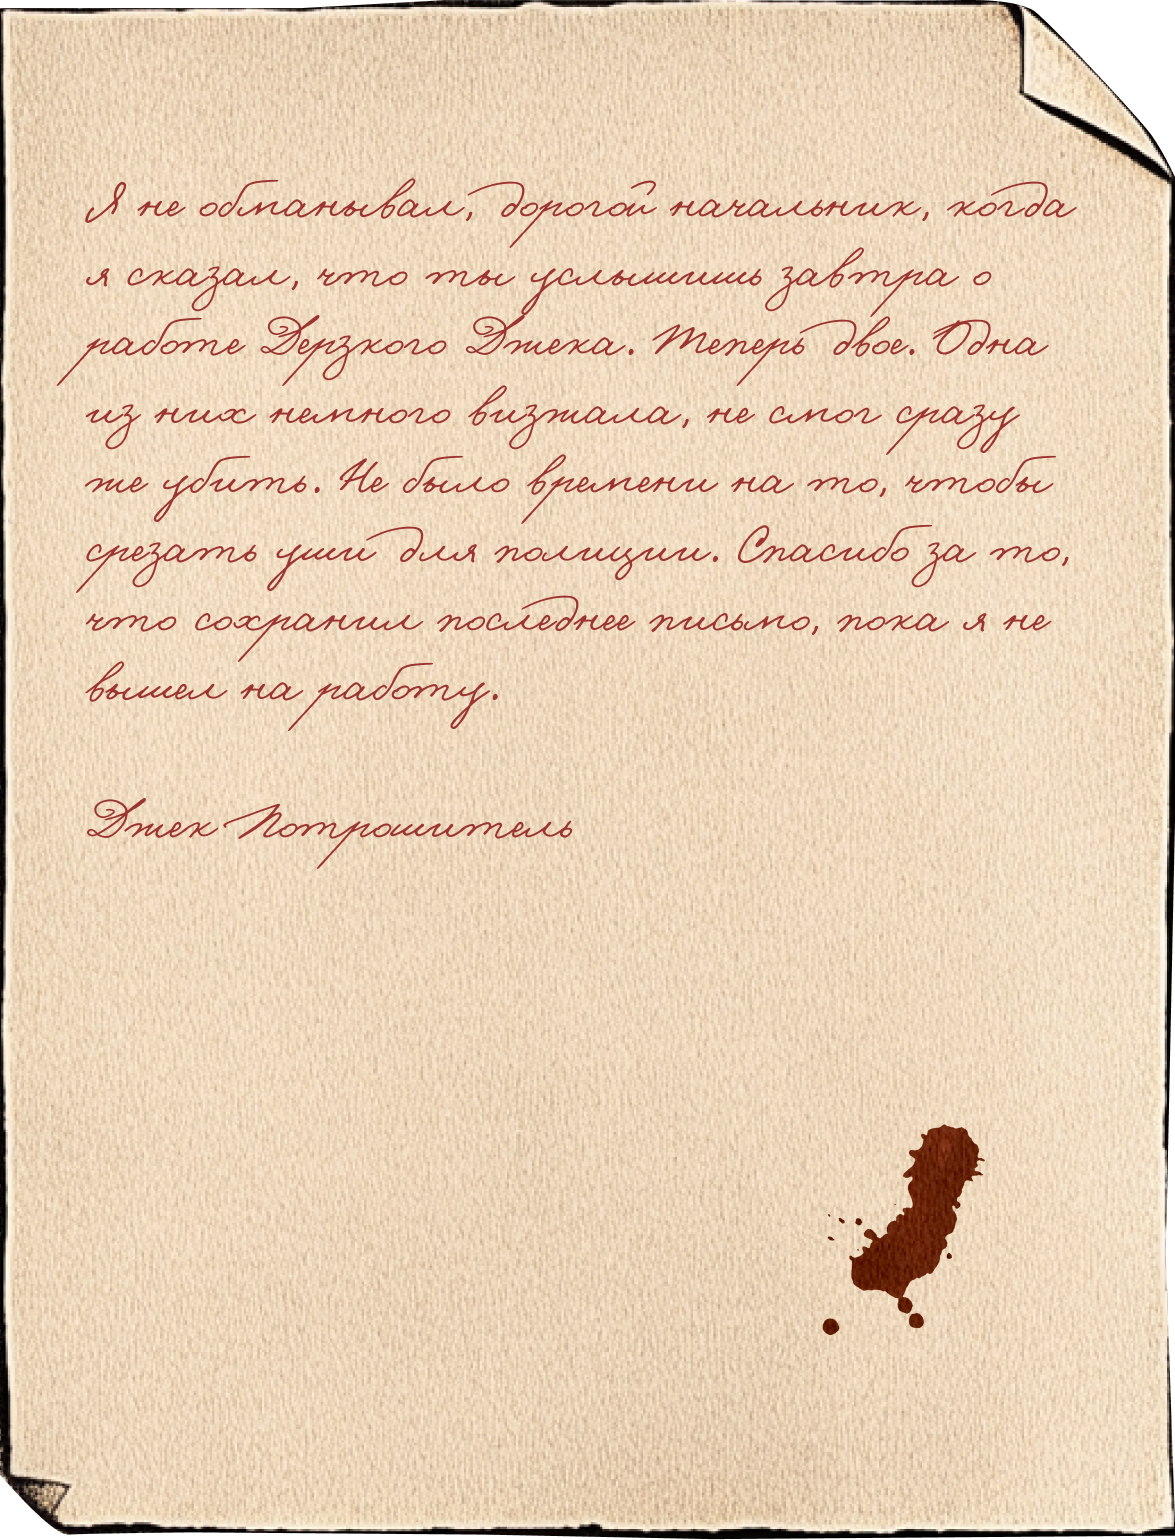 Я не обманывал, дорогой начальник, когда
я сказал, что ты услышишь завтра о
работе Дерзкого Джека. Теперь двое. Одна
из них немного визжала, не смог сразу
же убить. Не было времени на то, чтобы
срезать уши для полиции. Спасибо за то,
что сохранил последнее письмо, пока я не
вышел на работу.
Джек Потрошитель